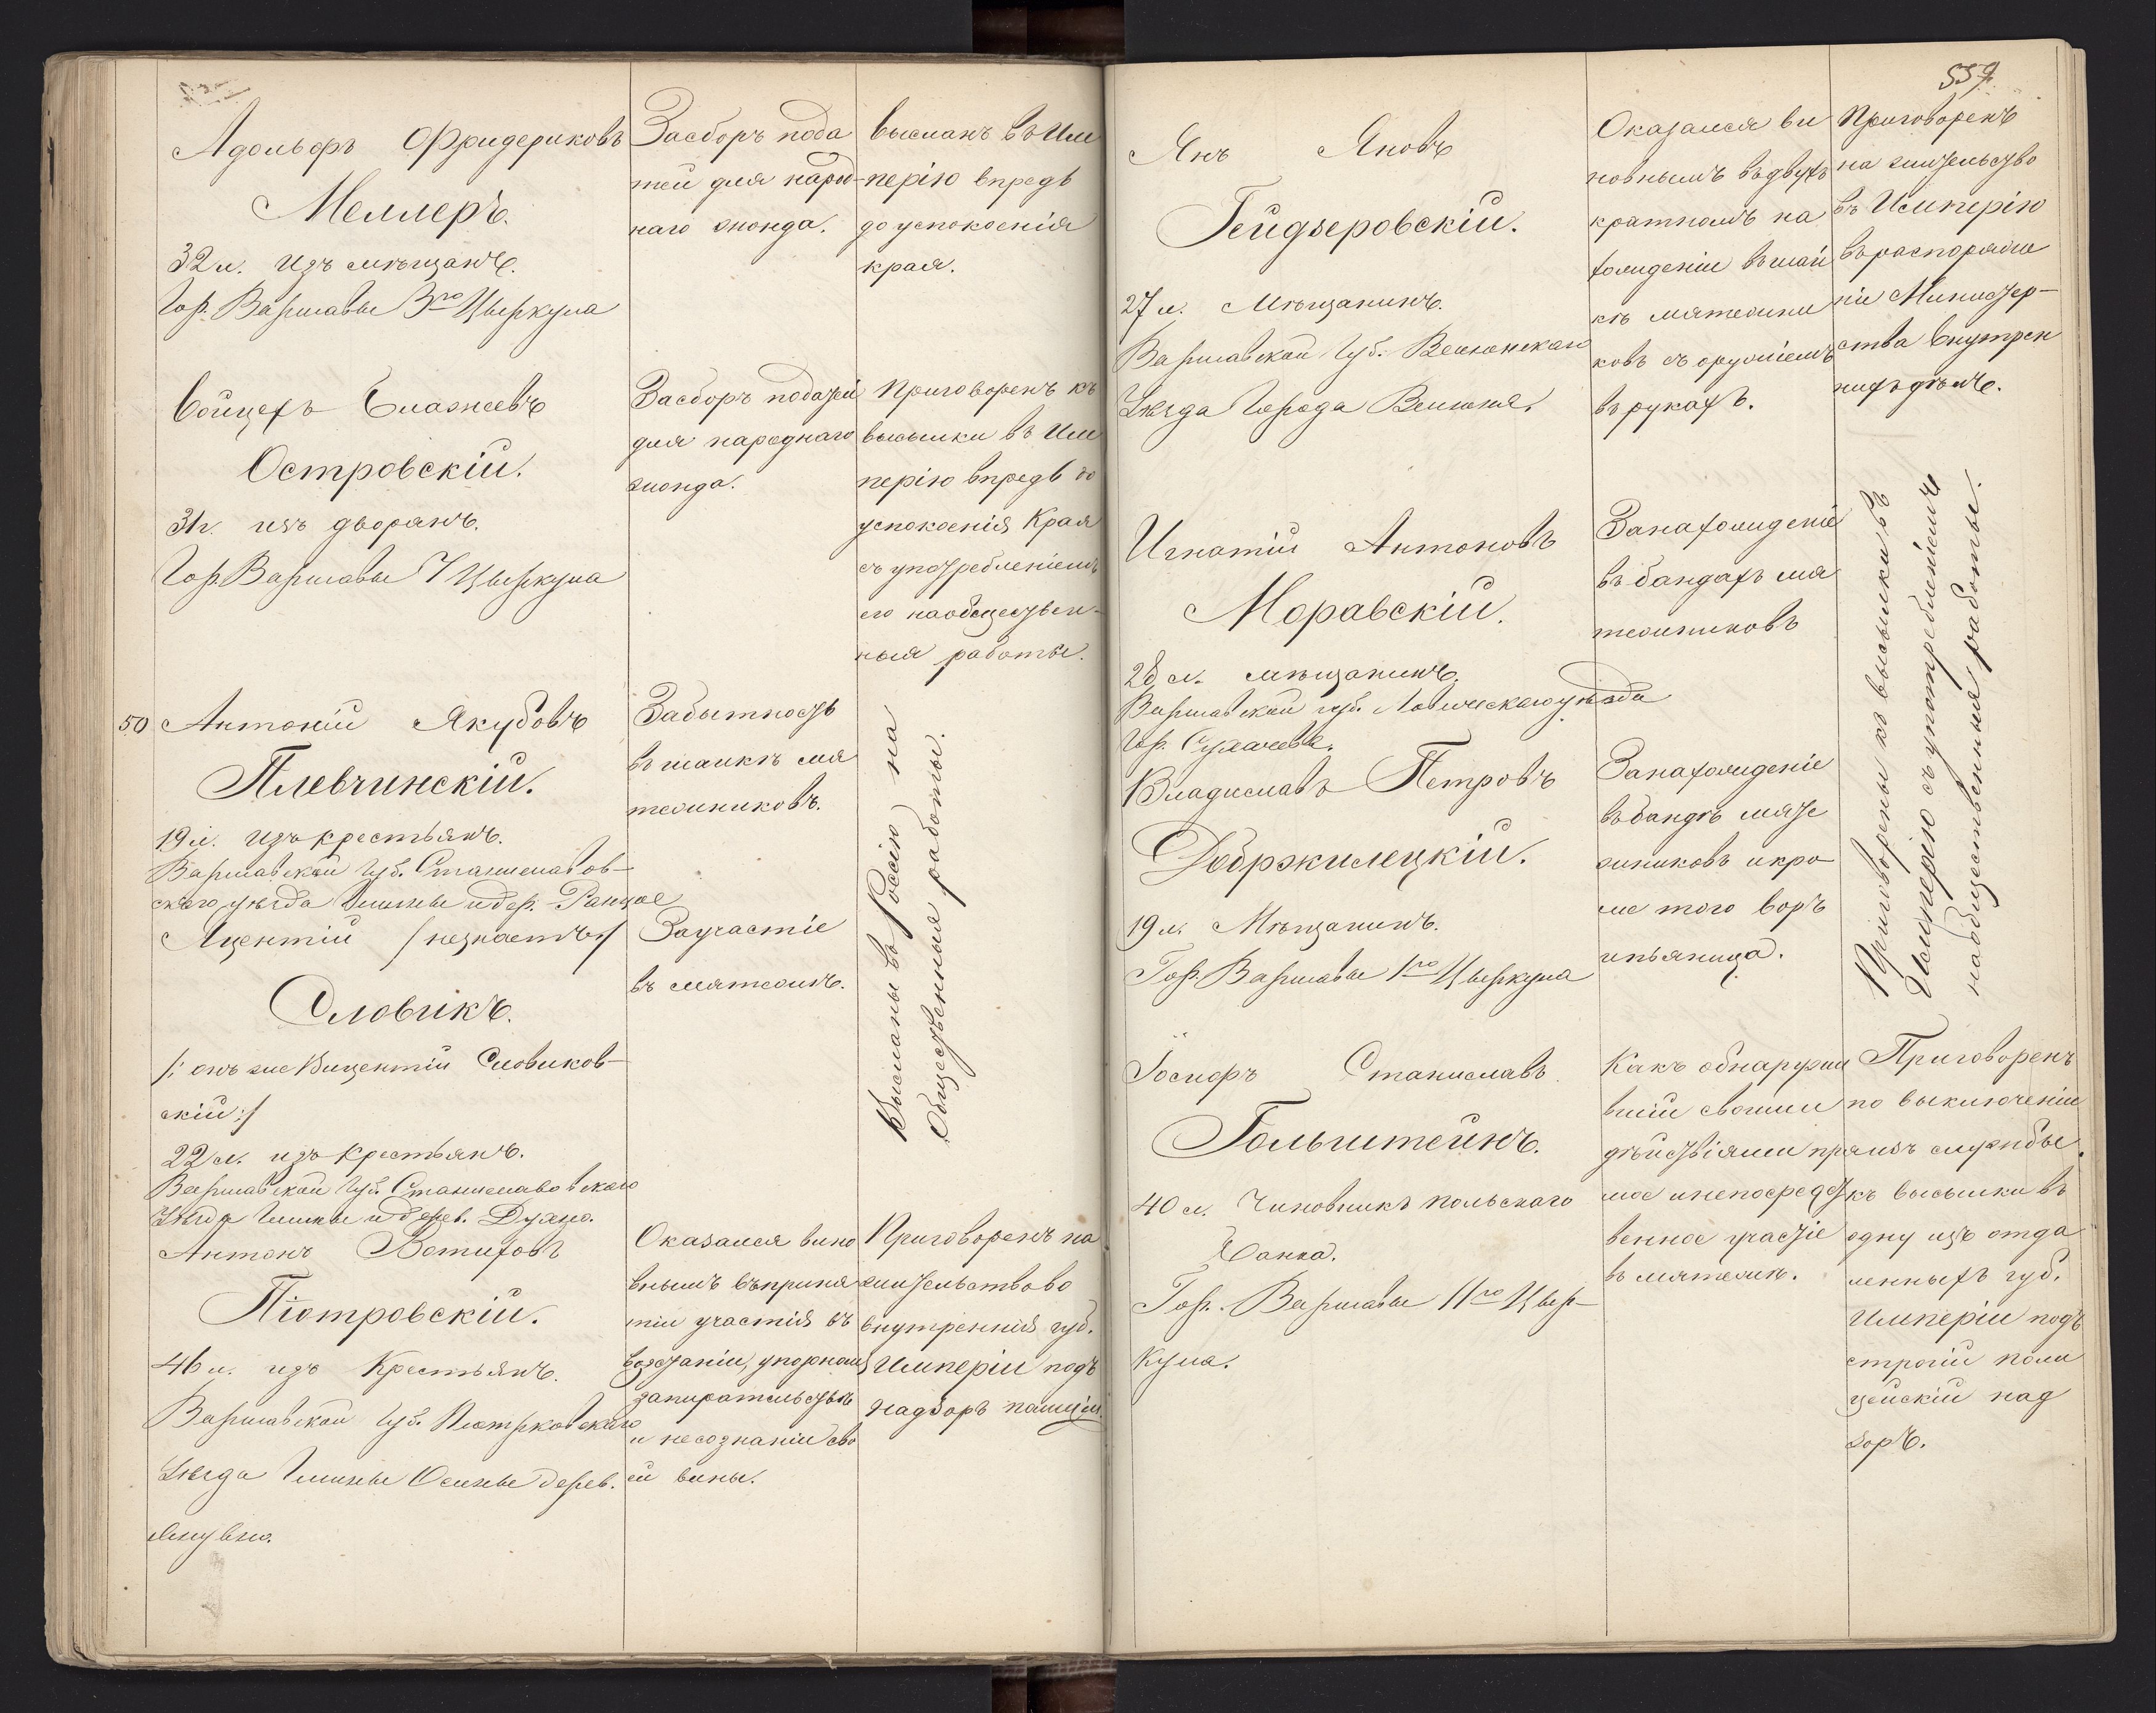 Адольфъ Фридериковъ
Меллеръ.
32 л. Изъ мѣщанъ.
Гор. Варшавы 3го Цыркула
За сборъ пода
тей для народ-
наго фонда.
Высланъ въ Им
перію впредь
до успокоенія
края.
Войцехъ Блажеевъ
Островскій.
31 г. изъ дворянъ.
Гор. Варшавы 7 Цыркула
За сборъ податей
для народнаго
фонда.
Приговоренъ къ
высылки въ Им
перію впредь до
успокоенія Края
съ употребленіемъ
его на обществен-
ныя работы.
50 Антоній Якубовъ
Плевчинскій.
19 л. Изъ крестьянъ.
Варшавской Губ. Станиславов-
скаго уѣзда Гмины и дер.
За бытность
въ шайкѣ мя
тежниковъ.
Высланы въ Россію на
Общественныя работы.
Ацентій /незнаетъ/
Словикъ.
/: онъ же Вицентій Словиков-
скій :/
22 л. изъ крестьянъ.
Варшавской Губ. Станиславовскаго
Уѣзда Гмины и дерев.
За участіе
въ мятежѣ.
Антонъ
Піотровскій.
46 л. изъ Крестьянъ.
Варшавской Губ. Піотрковскаго
Уѣзда Гмины Осины дерев.
Оказался вино
внымъ въ приня
тіи участія въ
возстаніи, упорномъ
запирательствѣ
и несознаніи сво
ей вины.
Приговоренъ на
жительство во
внутреннія губ.
Имперіи подъ
надзоръ полиціи.
559
Янъ Яновъ
Гейдзеровскій.
27 л. Мѣщанинъ.
Варшавской Губ. Велюнскаго
Уѣзда Города Велюня.
Оказался ви
новнымъ въ двухъ
кратномъ на
хожденіи въ шай
кѣ мятежни
ковъ съ оружіемъ
въ рукахъ.
Приговоренъ
на жительство
въ Имперію
въ распоряже
ніи Министер-
ства Внутрен
нихъ дѣлъ.
Игнатій Антоновъ
Моравскій.
28 л. мѣщанинъ.
Варшавской губ. Ловическаго уѣзда
Гор. Сухачева.
За нахожденіе
въ бандахъ мя
тежниковъ
Приговорены къ высылки въ
Имперію съ употребленіемъ
на общественныя работы.
Владиславъ Петровъ
Добржилецкій.
19 л. Мѣщанинъ.
Гор. Варшавы 1го Цыркула
За нахожденіе
въ бандѣ мяте
жниковъ и кро
ме того воръ
и пьяница.
Іосифъ Станиславъ
Гольштейнъ.
40 л. Чиновникъ польскаго
Банка.
Гор. Варшавы 11го Цыр-
кула.
Какъ обнаружи
вшій своими
дѣйствіями пря
мое и непосредст
венное участіе
въ мятежѣ.
Приговоренъ
по выключеніи
изъ службы
къ высылки въ
одну изъ отда
ленныхъ губ.
Имперіи подъ
строгій поли
цейскій над
зоръ.